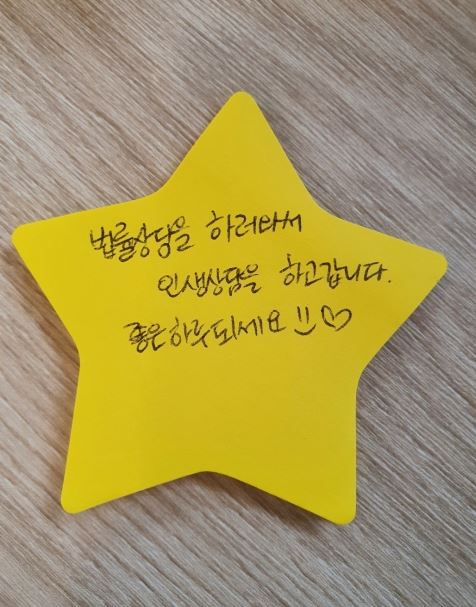 법률상담을 하러와서
인생상담을 하고갑니다.
좋은하루되세요 :) ♡